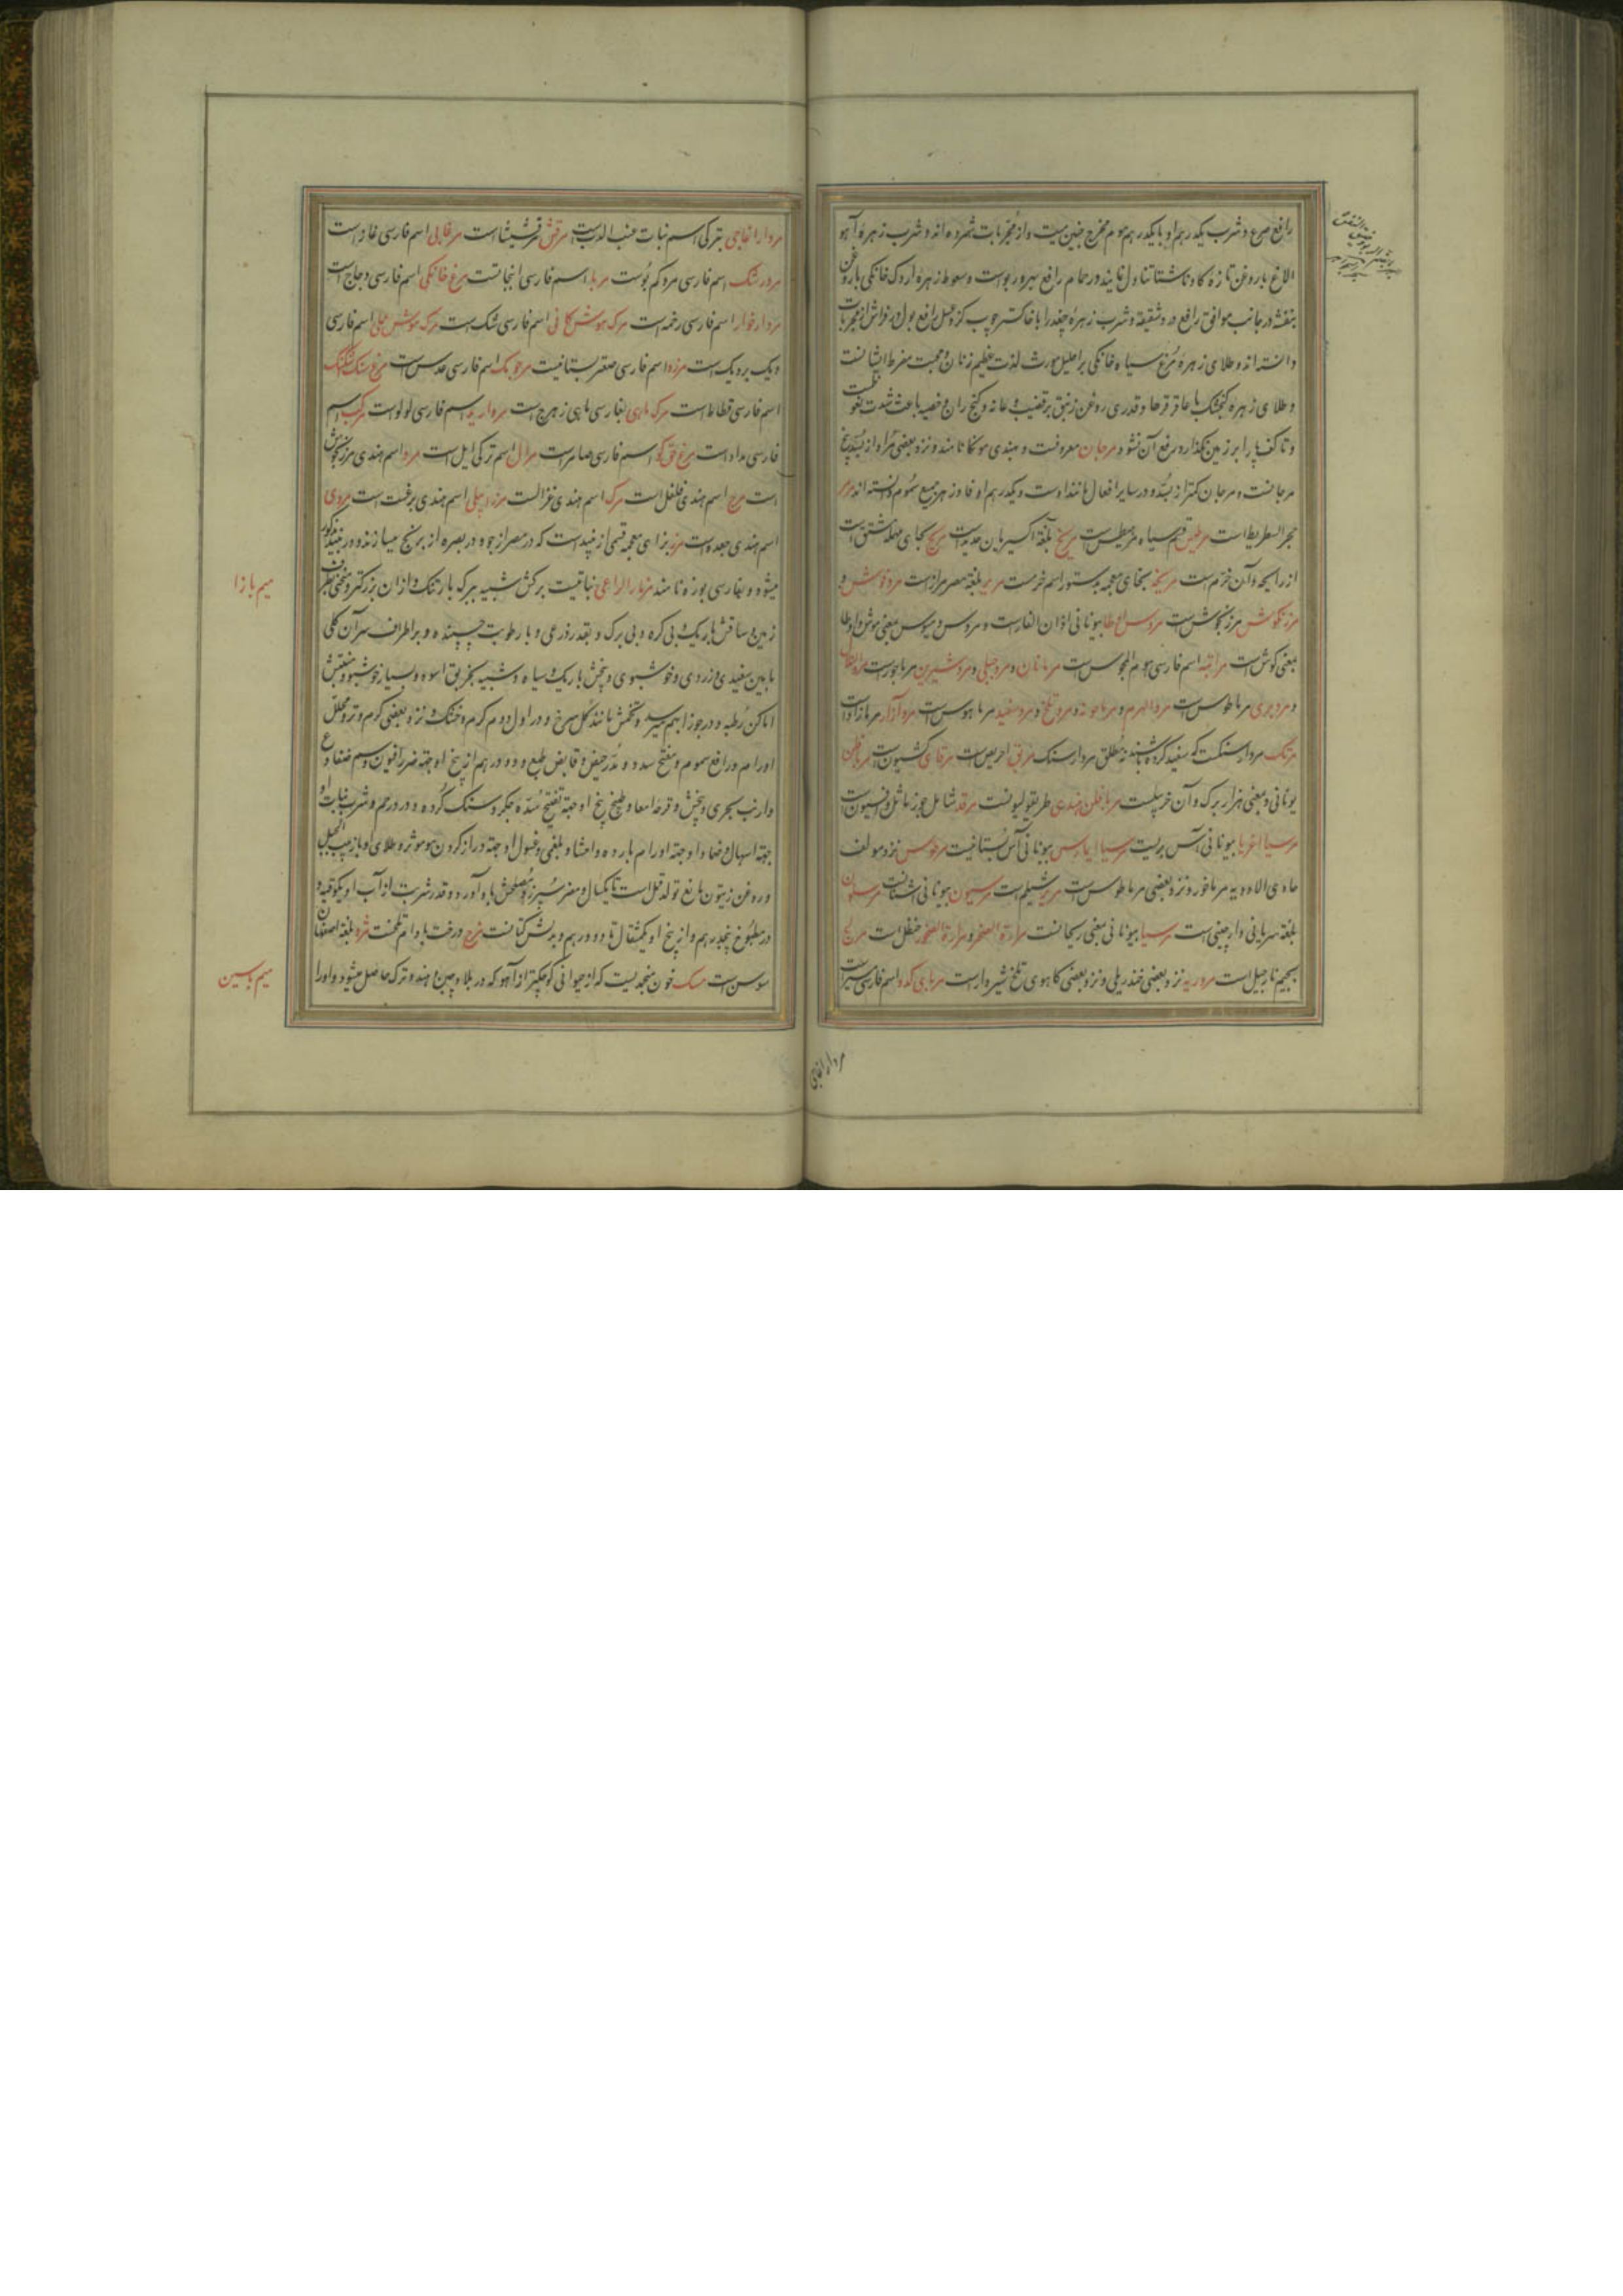 رافع صرع و شرب یکدرهم او با یکدرهم موم مخرج جنین میت و از مجربات شمرده اند و شرب زهره آهو
الاغ با روغن تازه کاو ناشتا تناول نمایند در حمام رافع سپرور بواست و سعوط زهره اردک خانکی با روغن
بنفشه در جانب موافق رافع درد شقیقه و شرب زهره چغد را با خاکستر چوب کز و عسل رافع بول در فراش از مجربات
دانسته اند و طلای زهره مرغ سیاه خانکی بر احلیل مورث لذت عظیم زنان و محبت مفرط ایشانست
و طلای زهره کنجشک با عاقرقرحا و قدری روغن زنبق بر قضیب و عانه و کنج ران و خصیه باعث شدت نعوظست
و تا کف پا را بر زمین نکذارد رفع آن نشود مرجان معروفست و بهندی مونکا نامند و نزد بعضی مراد از بسد بیخ
مرجانست و مرجان کمتر از بسد و در سایر افعال مانند اوست و یکدرهم او فادزهر جمیع سموم دانسته اند مرمر
حجر السطریطا است مرطیس قسم سیاه مرمیطس است مریخ بلغة اکسیریین حدیداست مریح بحای مهمله مشتق است
از رایحه و آن خزم است مریخه بخای معجمه بدستور اسم خرمست مریر بلغة مصر مرار است مردقوش و
مرزنکوش مرزنجوش است مردس اوطا بیونانی اذان الفاراست و مردس و میوس بمعنی موش و اوطا
بمعنی کوش است مرانیه اسم فارسی هوم المجوس است مرمانان و مرو جبلی و مرو شیرین مرماحوز است
و مرو بری مرماطوس است مرو الهرم و مرماحوز و مرو تلخ و مرو سفید مرماهوس است مروآزاد مرمازاد است
مرتک مرداسنکست که سفید کرده باشند نه مطلق مرداسنک مریق احریض است مرقای کشیون است مریافلن
یونانی و بمعنی هزار برک و آن حزنبلست مریافلن هندی طریقولیونست مرقد شامل جوز ماثل و افیون است
مرسیا اغریا بیونانی آس بریست مرسیا ایمارس بیونانی آس بستانیست مرطوس نزد مولف
حاوی الادویه مرماخور و نزد بعضی مرماطوس است مریر شیلم است مرسیون بیونانی اشنانست مرسلون
بلغة سریانی دارچینی است مرسیا بیونانی بمعنی ریحانست مرارة الصخر و مرارة الصخور حنظل است مرنج
بجیم نارجیل است مروریه نزد بعضی خندریلی و نزد بعضی کاهوی تلخ شیردار است مربای کدو اسم فارسی
مردار اغاجی
مردار اغاجی بترکی اسم نبات عنب الدبست مرقش مرقشیشا است مرغابی اسم فارسی غاز است
مردرشک اسم فارسی مرو کم بوست مربا اسم فارسی انبجاتست مرغ خانکی اسم فارسی دجاج است
مردارخوار اسم فارسی رخمه است مرک موش کانی اسم فارسی شک است مرک موش عملی اسم فارسی
دیک بردیک است مرزه اسم فارسی صعتر بستانیست مرجوک اسم فارسی عدس است مرغ سنک شکنک
اسم فارسی قطاطا است مرک ماهی بفارسی ماهی زهرج است مروارید اسم فارسی لولو است مرکب اسم
فارسی مداد است مرغ حق کو اسم فارسی صاصر است مرال اسم ترکی ایل است مروا اسم هندی مرزنجوش
است مرچ اسم هندی فلفل است مرک اسم هندی غزالست مرزا بیلی اسم هندی برغست است مردی
اسم هندی جعده است مزر بزای معجمه قسمی از نبیذ است که در مصر از جو و در بصره از برنج میسازند و در نبیذ مذکور
میشود و بفارسی بوزه نامند مزمار الراعی نباتیست برکش شبیه ببرک بارتنک و از آن بزرکتر و منحنی بطرف
زمین و ساقش باریک و بی کره و بی برک و بقدر ذرعی و با رطوبت چسبنده و بر اطراف سر آن کلی
مابین سفیدی و زردی و خوشبوی و بیخش باریک و سیاه و شبیه بخربق اسود و بسیار خوشبو و منبتش
اماکن رطبه و در جوزا بهم میرسد و تخمش مانند کل سرخ و در اول دوم کرم و خشک و نزد بعضی کرم و تر و محلل
اورام و رافع سموم و مفتح سدد و مدر حیض و قابض طبع و دو درهم از بیخ او جهة ضرر افیون و سم ضفادع
و ارنب بحری و پخش و قرحه امعا و طبیخ بیخ او جهة تفتیح سده جکر و سنک کرده و درد رحم و شرب نبات او
جهة اسهال و ضماد او جهة اورام بارده و احشاء بلغمی و غسول او جهة دراز کردن مو موثر و طلای او با زبیب الجبل
و روغن زیتون مانع تولد قمل است تا یکسال و مضر سپرز و مصلحش باد آورد و قدر شربت از آب او یکوقیه و
در مطبوخ پنجدرهم و از بیخ او یکمثقال تا دو درهم و بدلش کتانست مزج درخت بادام تلخست مزه بلغة اصفهان
سوسن است مسک خون منجمدیست که از حیوانی کوچکتر از آهو که در بلاد چین و هند و ترک حاصل میشود و او را
میم با زا
میم با سین